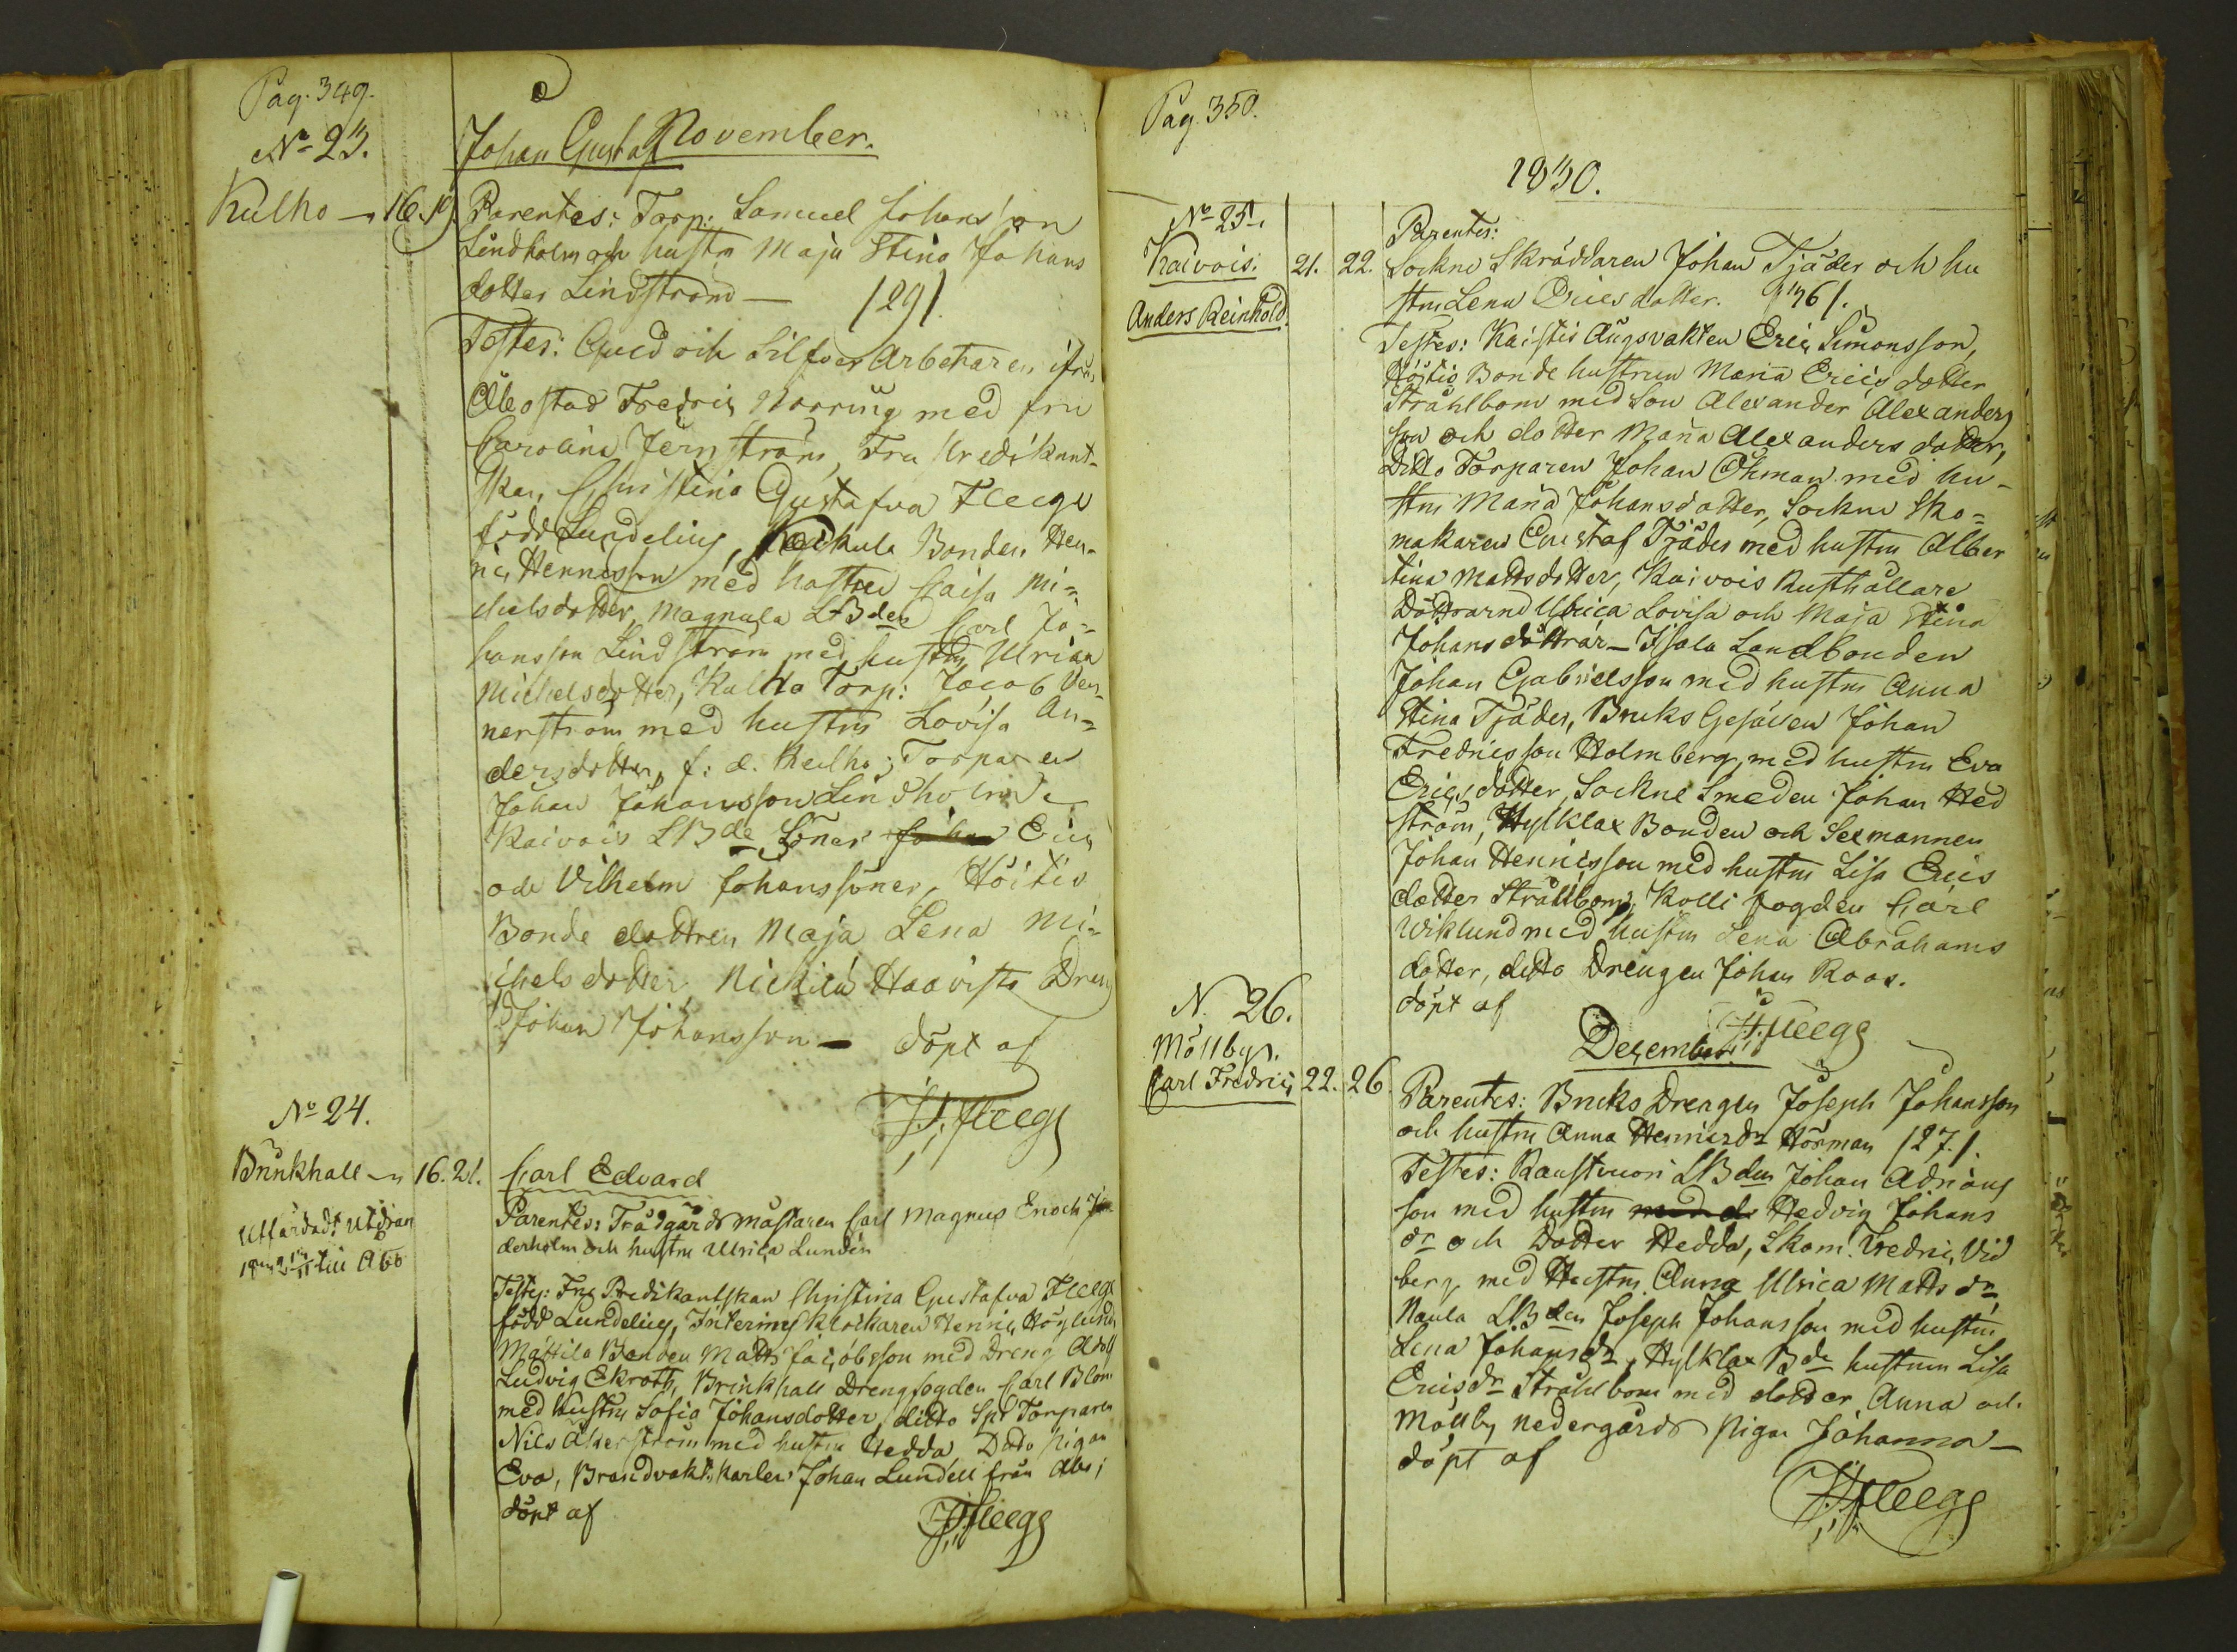 Pag. 349.
No 23.
Johan Gustaf November.
Kulho 16. 19. Parentes: Torp: Samuel Johansson
Lindholm och hustru Maja Stina Johans
dotter Lindström — /29/
Testes: Guld och Silfver Arbetaren ifrån
Åbo stad Fredric Norring med fru
Carolina Jernström, Fru Predikant-
skan Christina Gustafva Fleege
född Lundelius, Bonden Hen-
ric Henricsson med hustru Caisa Mi-
chelsdotter, Magnula LBden Carl Jo-
hansson Lindström med hustru Ulrica
Michelsdotter, Kulho Torp: Jacob Ven-
nerström med hustru Lovisa An-
dersdotter, f: d. Kulho Torparen
Johan Johansson Lindholm
Kaivois LBde Söner Eric
och Vilhelm Johanssöner, Höitis
Bonde dottren Maja Lena Mi-
chelsdotter, Haavisto Dreng
Johan Johansson — döpt af
J. Fleege
No 24.
Brinkhall 16. 21. Carl Edvard
Utfärdadt Utdrag
till Åbo
Parentes: Trädgårdsmästaren Carl Magnus Enoch
derholm och hustru Ulrica Lundén
Testes: Fru Predikantskan Christina Gustafva Fleege
född Lundelius, Interims Klockaren Henric Höglund,
Mattila Bonden Matts Jacobsson med Dreng Adolf
Ludvig Ekroth, Brinkhall Drengfogden Carl Blom
med hustru Sofia Johansdotter, ditto Torparen
Nils Åkerström med hustru Hedda Dito Pigan
Eva, Brandvakts karlen Johan Lundell från Åbo;
döpt af J. Fleege
Pag. 350.
1830.
No 25.
Parentes:
Kaivois. 21. 22. Sockne Skräddaren Johan Tjäder och hu
Anders Reinhold.
stru Lena Ericsdotter. /36/.
Testes: Kaistis Ångsvakten Eric Simonsson,
Höitis Bonde hustrun Maria Erics dotter
Stråhlbom med Son Alexander Alexanders
son och dotter Maria Alexanders dotter,
Ditto Torparen Johan Öhman med hu-
stru Maria Johansdotter, Sockne Sko-
makaren Gustaf Tjäder med hustru Alber
tina Mattsdotter, Kaivois Rusthållare
Döttrarne Ulrica Lovisa och Maja Stina
Johans döttrar — Isala Landbonden
Johan Gabrielsson med hustru Anna
Stina Tjäder, Bruks Gesällen Johan
Fredricsson Holmberg, med hustru Eva
Ericsdotter, Sockne Smeden Johan Hed
ström, Hylklax Bonden och Sexmannen
Johan Henricsson med hustru Lisa Erics
dotter Stråhlbom, Kolli fogden Carl
Wiklund med hustru Lena Abrahams
dotter, ditto Drengen Johan Roos.
döpt af
J. Fleege
December.
N. 26.
Möllby.
Carl Fredric 22. 26. Parentes: Bruks Drengen Joseph Johansson
och hustru Anna Henricsdr Hörman /27/.
Testes: Raustvuori LBden Johan Adrians
son med hustru Hedvig Johans
dr och Dotter Hedda, Skom. Fredric Vid
berg med Hustru Anna Ulrica Matts dr,
Naula LBden Joseph Johansson med hustru
Lena Johansdr, Hylklax Bde hustrun Lisa
Ericsdr Stråhlbom med dotter Anna och
Möllby Nedergårds Pigan Johanna —
döpt af
J. Fleege